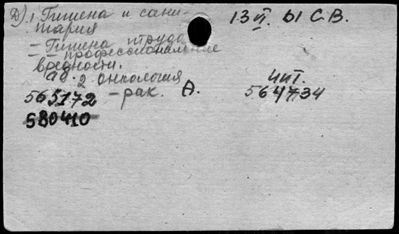 Д). 1 Гигиена и сани-
тария
13 II. Ы С.В.
– Гигиена труда
– профессиональные
вредности.
2 онкология
чит.
565172 – рак. А.
564734
580410